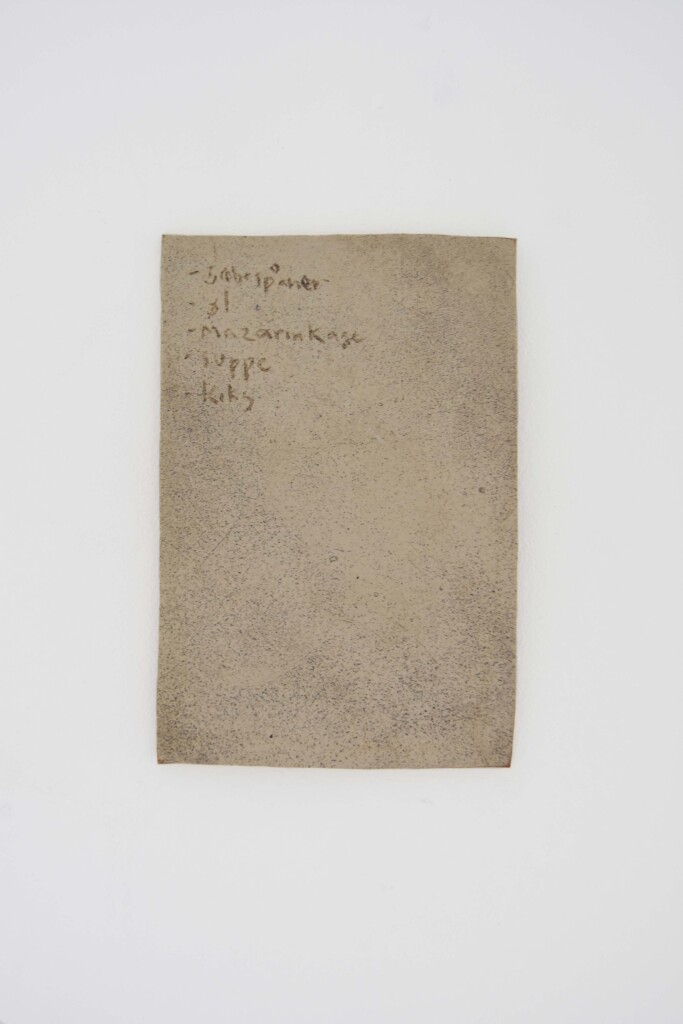 - Sæbespåner
- øl
- Mazarinkage
- suppe
- Kiks